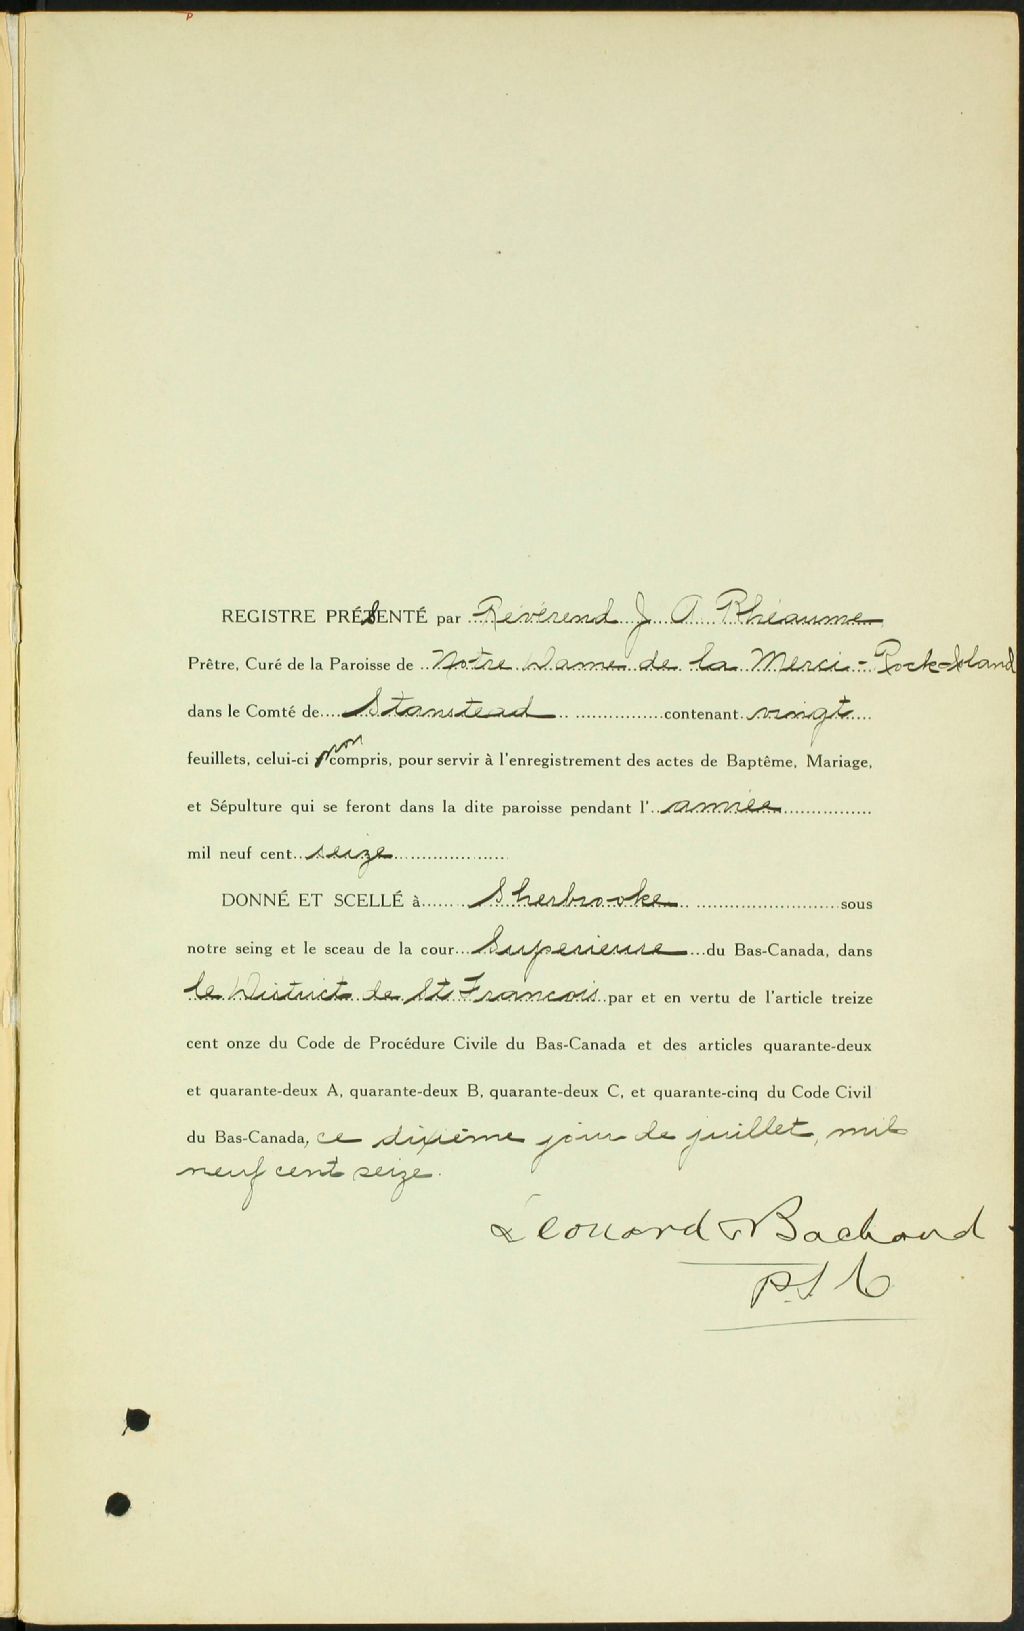 REGISTRE PRÉSENTÉ par Révérend J. A. Rhéaume
Prêtre, Curé de la Paroisse de Notre Dame de la Merci - Rock-Island
dans le Comté de Stanstead contenant vingt
feuillets, celui-ci non compris, pour servir à l'enregistrement des actes de Baptême, Mariage,
et Sépulture qui se feront dans la dite paroisse pendant l' année
mil neuf cent seize
DONNÉ ET SCELLÉ à Sherbrooke sous
notre seing et le sceau de la cour Superieure du Bas-Canada, dans
le District de St François par et en vertu de l'article treize
cent onze du Code de Procédure Civile du Bas-Canada et des articles quarante-deux
et quarante-deux A, quarante-deux B, quarante-deux C, et quarante-cinq du Code Civil
du Bas-Canada, ce dixième jour de juillet, mil
neuf cent seize.
Bachand